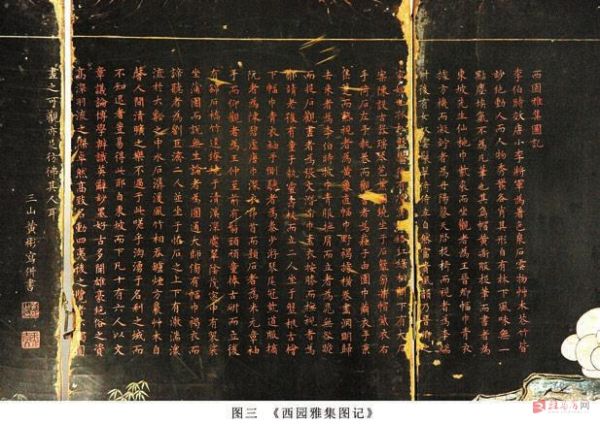 西園雅集圖記
李伯時效唐小李將軍為着色泉石雲物草木花竹皆
妙絶動人而人物秀發各肖其形自有林下風味無一
點塵埃氣不為凡筆也其烏帽黃道服捉筆而書者為
東坡先生仙桃巾紫裘而坐觀者為王晉卿幅巾青衣
據方機而凝竚者為丹陽蔡天啟捉椅而視者為李端
叔後有女奴雲鬟翠飾侍立自然富貴風韻乃晉卿之
案陳設古器瑤琴芭蕉圍繞坐于石盤旁道帽紫衣右
手倚石左手執卷而觀書者為蘇子由團巾繭衣手秉
蕉箑而熟視者為黃魯直幅巾野褐據橫卷畫淵明歸
去來者為李伯時披巾青服撫肩而立者為晁无咎跪
而捉石觀畫者為張文潛道巾素衣按膝而俯視者為
鄭靖老後有童子執靈壽杖而立二人坐于盤根古檜
下幅巾青衣袖手側聽者為秦少游琴尾冠紫道服摘
阮者為陳碧虛唐巾深衣昂首而題石者為米元章袖
手而仰觀者為王仲至前有鬅頭頑童捧古硯而立後
有錦石橋竹徑繚繞于清溪深處翠陰茂密中有袈裟
坐蒲團而說無生論者為圓通大師傍有幅巾褐衣而
諦聽者為劉巨濟二人並坐于怪石之上下有激湍潨
流於大谿之中水石潺湲風竹相吞爐煙方裊草木自
馨人間清曠之樂不過于此嗟乎洶湧于名利之域而
不知退者豈易得此耶自東坡而下凡十有六人以文
章議論博學辨識英辭妙墨好古多聞雄豪絶俗之資
高深羽流之傑卓然高致名動四夷後之覽者不獨圖
畫之可觀亦足彷彿其人耳
三山黃彬寫併書
图三 《西园雅集图记》